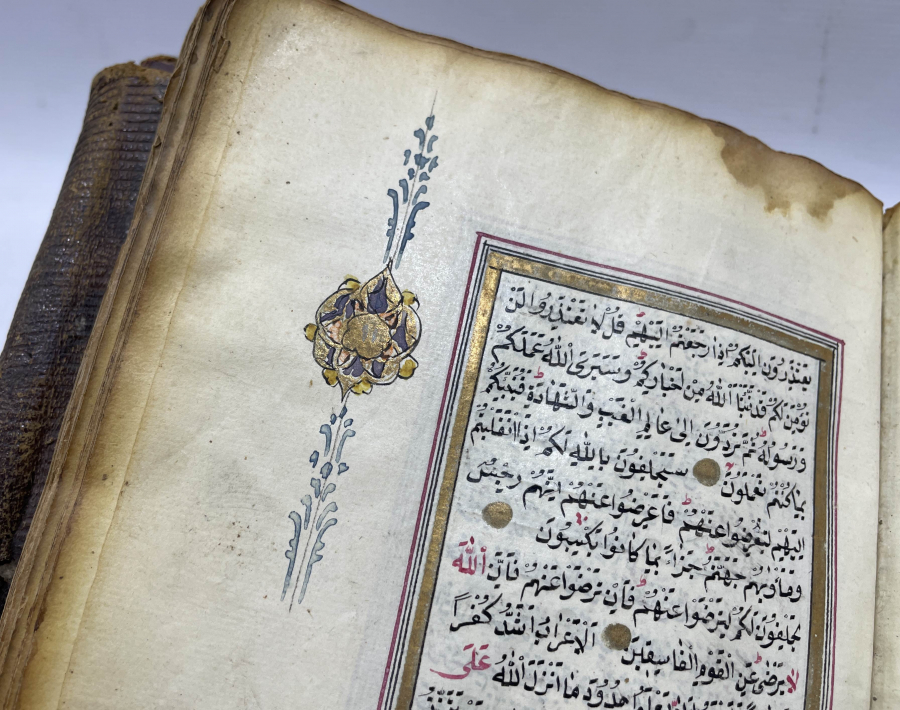 يَعْتَذِرُونَ اِلَيْكُمْ اِذَا رَجَعْتُمْ اِلَيْهِمْ قُلْ لَا تَعْتَذِرُوا لَنْ
نُؤْمِنَ لَكُمْ قَدْ نَبَّأَنَا اللهُ مِنْ اَخْبَارِكُمْ وَسَيَرَى اللهُ عَمَلَكُمْ
وَرَسُولُهُ ثُمَّ تُرَدُّونَ اِلَى عَالِمِ الْغَيْبِ وَالشَّهَادَةِ فَيُنَبِّئُكُمْ
بِمَا كُنْتُمْ تَعْمَلُونَ سَيَحْلِفُونَ بِاللهِ لَكُمْ اِذَا انْقَلَبْتُمْ
اِلَيْهِمْ لِتُعْرِضُوا عَنْهُمْ فَاَعْرِضُوا عَنْهُمْ اِنَّهُمْ رِجْسٌ
وَمَأْوٰيهُمْ جَهَنَّمُ جَزَاءً بِمَا كَانُوا يَكْسِبُونَ
يَحْلِفُونَ لَكُمْ لِتَرْضَوْا عَنْهُمْ فَاِنْ تَرْضَوْا عَنْهُمْ فَاِنَّ اللهَ
لَا يَرْضَى عَنِ الْقَوْمِ الْفَاسِقِينَ اَلْاَعْرَابُ اَشَدُّ كُفْرًا
حُدُودَ مَا اَنْزَلَ اللهُ عَلَى